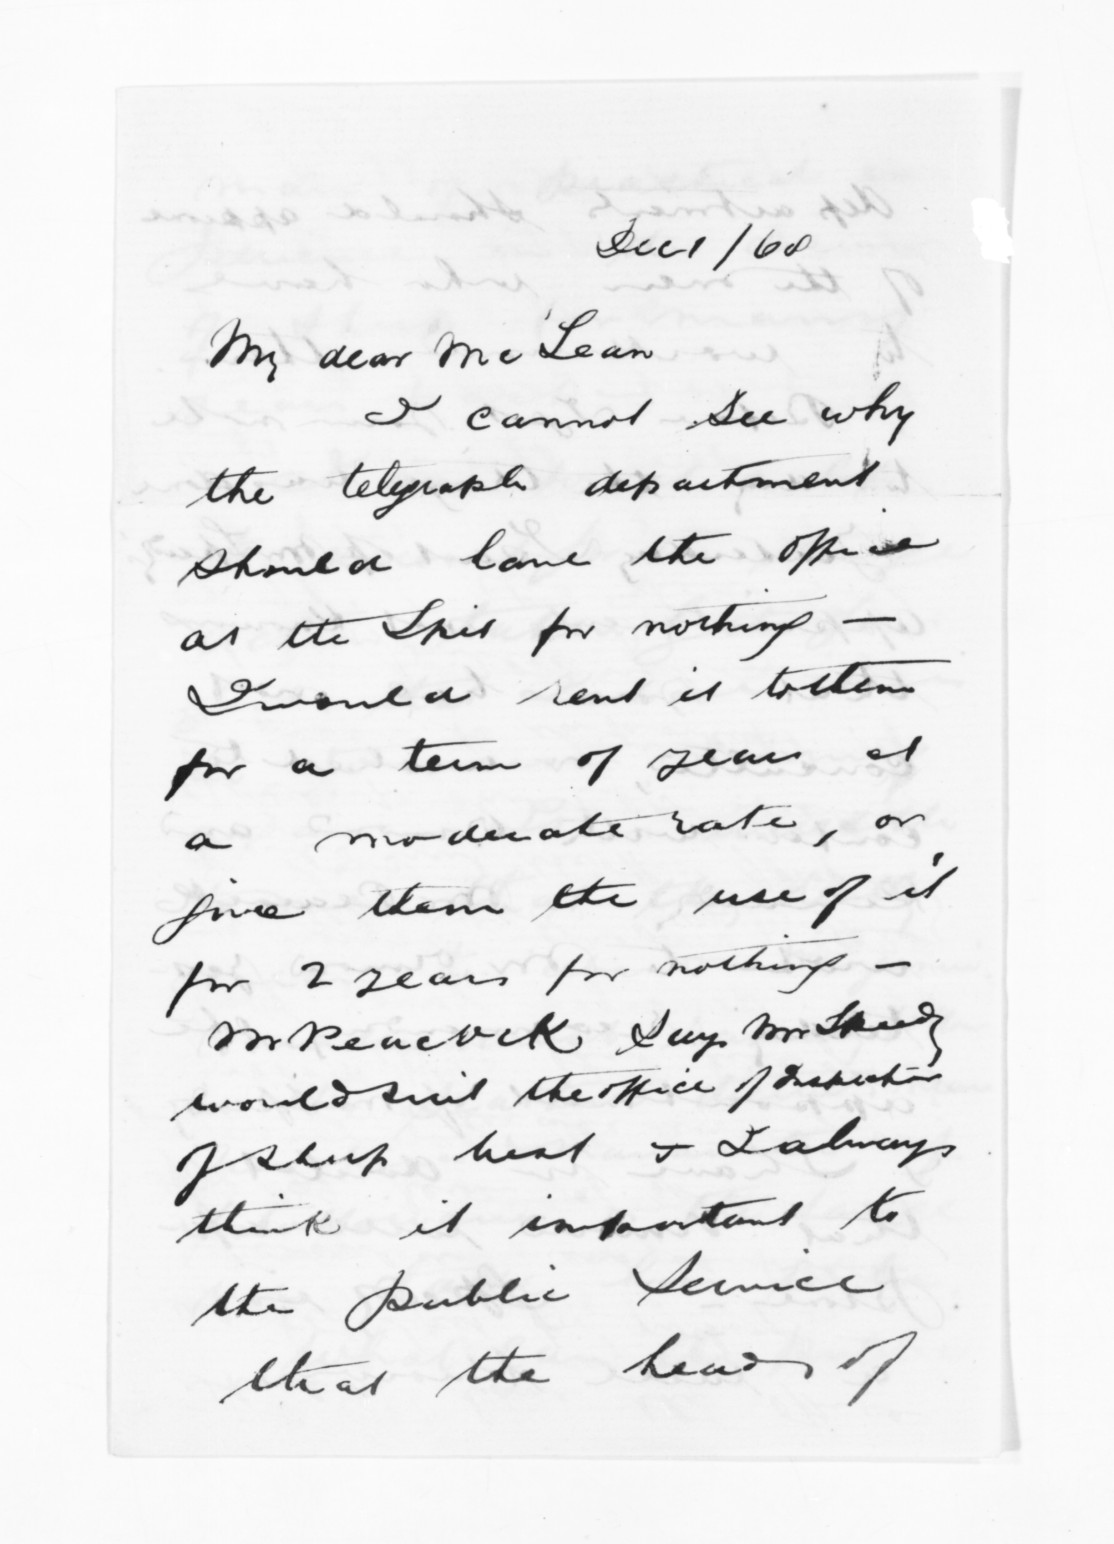 Dec 1 / 68
My dear McLean
I cannot see why
the telegraph department
should have the office
at the Spit for nothing —
I would rent it to them
for a term of years at
a moderate rate, or
give them the use of it
for 2 years for nothing —
Mr Peacock says Mr Speedy
would suit the office of Inspector
of Sheep best & I always
think it important to
the public service
that the heads of